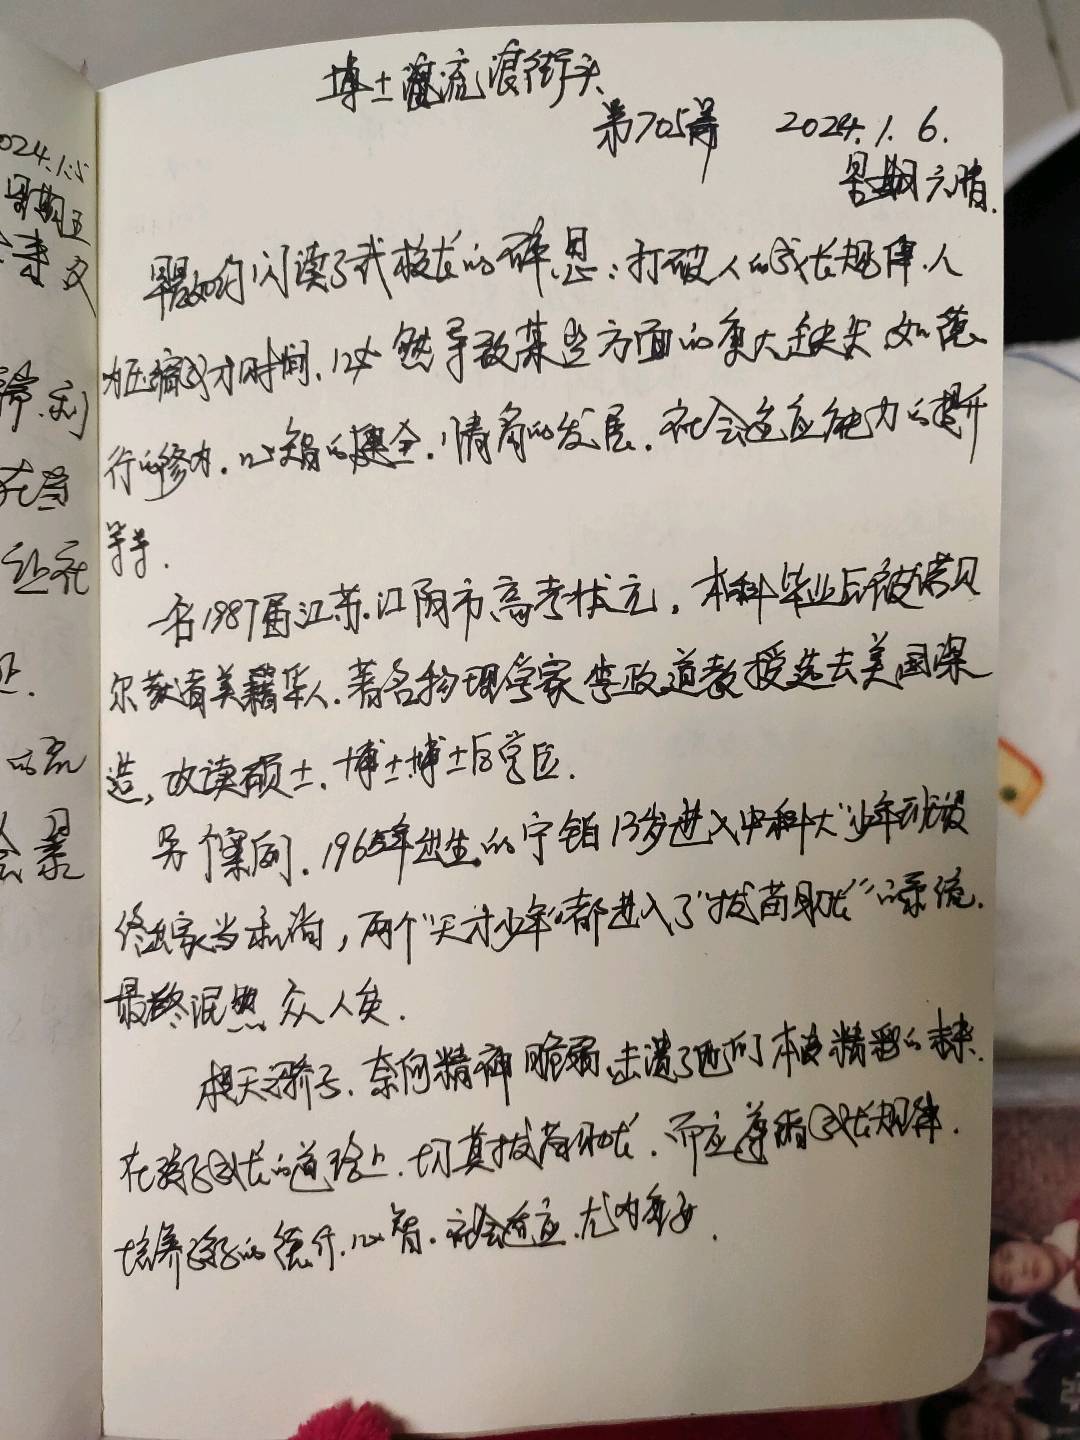 2024.1.5
星期五
博士流浪街头
第705篇 2024.1.6.
星期六晴.
阅读了我校长的 思:打破人的成长规律.人
为压缩成才时间.必然导致某些方面的重大缺失 如德
行的修为.心智的健全.情商的发展.社会适应能力的提升
等等.
一名1987届江苏.江阴市高考状元,本科毕业后被诺贝
尔获得者美籍华人.著名物理学家李政道教授选去美国深
造,攻读硕士.博士博士后学位.
另个案例.1965年出生的宁铂13岁进入中科大"少年班"
终出家当和尚,两个"天才少年"都进入了"拔苗助长"的系统.
最终泯然众人矣.
天骄子.奈何精神脆弱.击溃了他们本该精彩的未来.
在孩子成长的道路上.切莫拔苗助长.而应遵循成长规律.
培养孩子的德行.心智.社会适应.尤为重要.